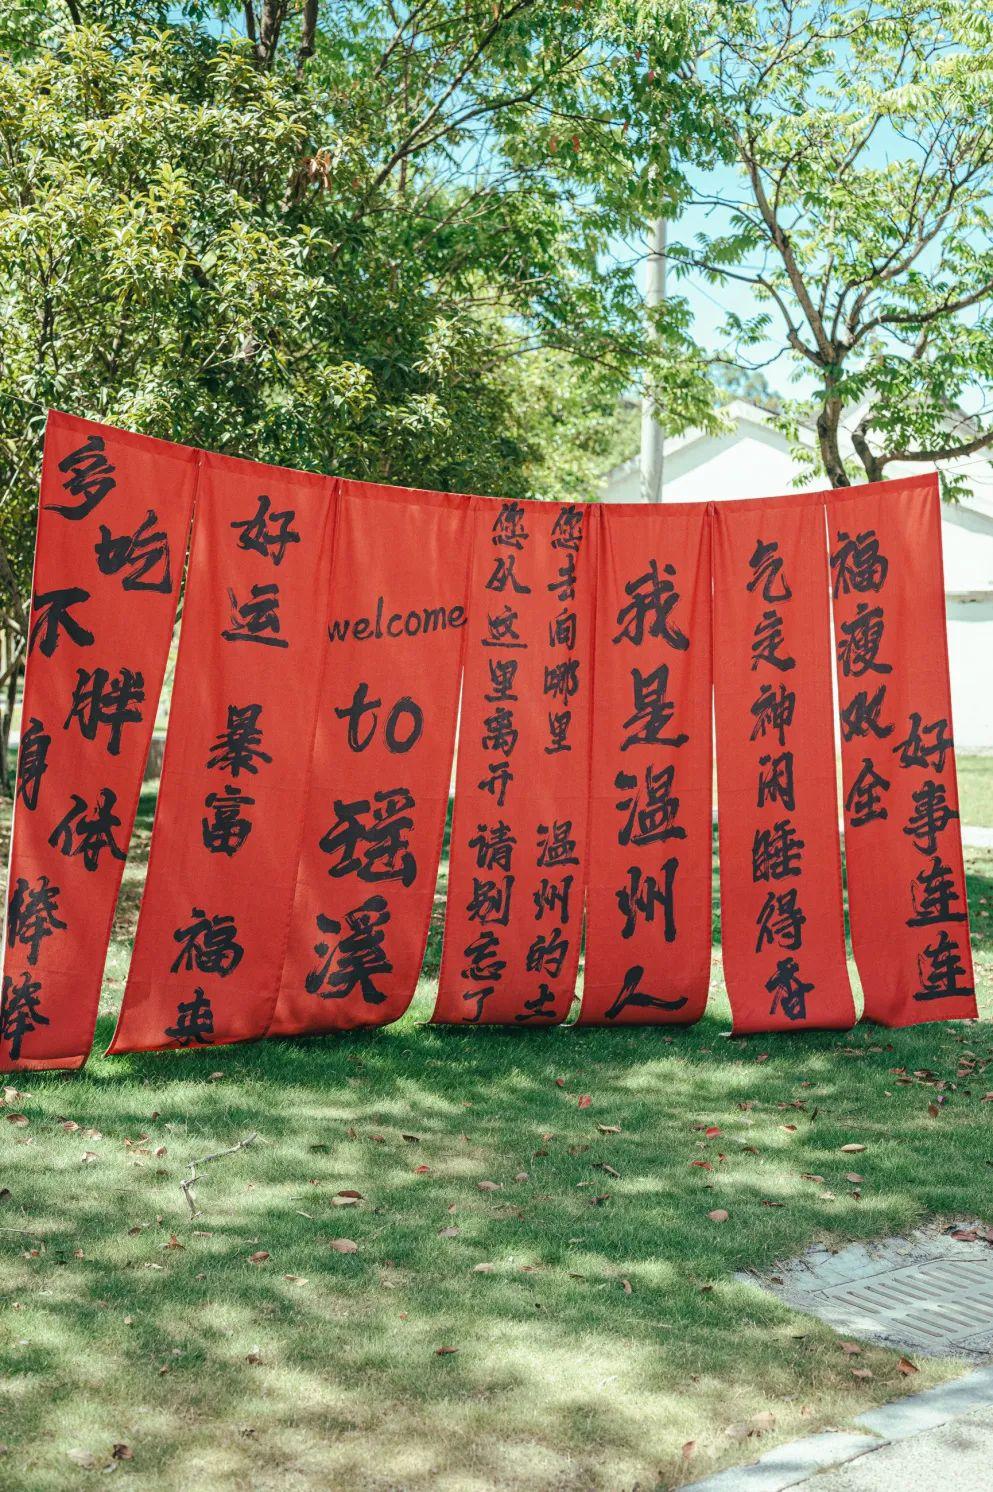 多吃不胖身体棒棒
好运 暴富 福来
welcome
to
瑶溪
您从这里离开 请别忘了
您去向哪里 温州的土
我是温州人
气定神闲睡得香
福瘦双全
好事连连